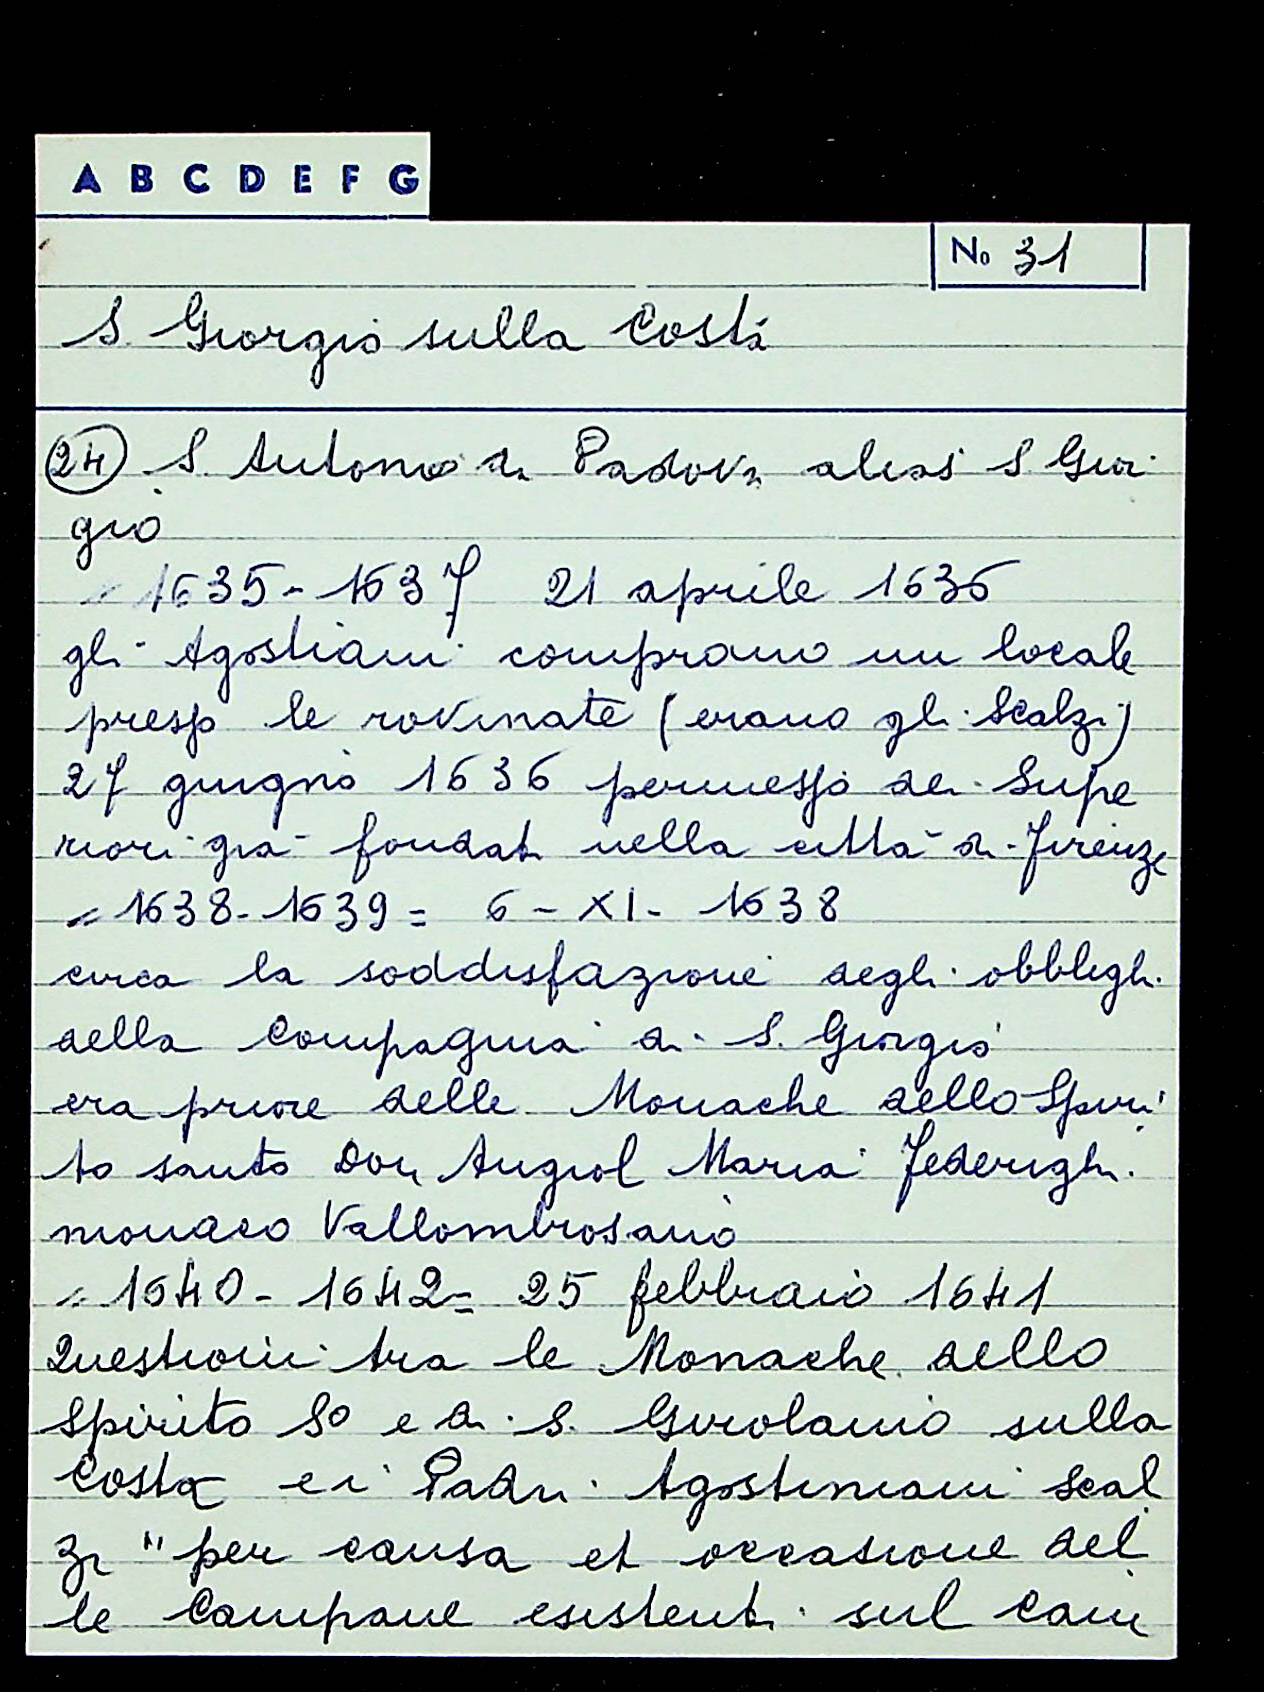 A B C D E F G
No 31
S. Giorgio sulla Costa
24 S. Antonio di Padova alias S Gior
gio
= 1635-1637 21 aprile 1636
gli Agostiani comprano un locale
presso le rovinate (erano gli Scalzi)
27 giugno 1636 permesso dei Supe
riori già fondati nella città di Firenze
= 1638-1639 = 6-XI-1638
circa la soddisfazione degli obblighi
della Compagnia di S. Giorgio
era priore delle Monache dello Spiri
to santo Don Angiol Maria Federighi
monaco Vallombrosano
= 1640-1642 = 25 febbraio 1641
Questioni tra le Monache dello
Spirito So e di S. Girolamo sulla
Costa e i Padri Agostiniani Scal
zi "per causa et occasione del
le Campane esistenti sul cam